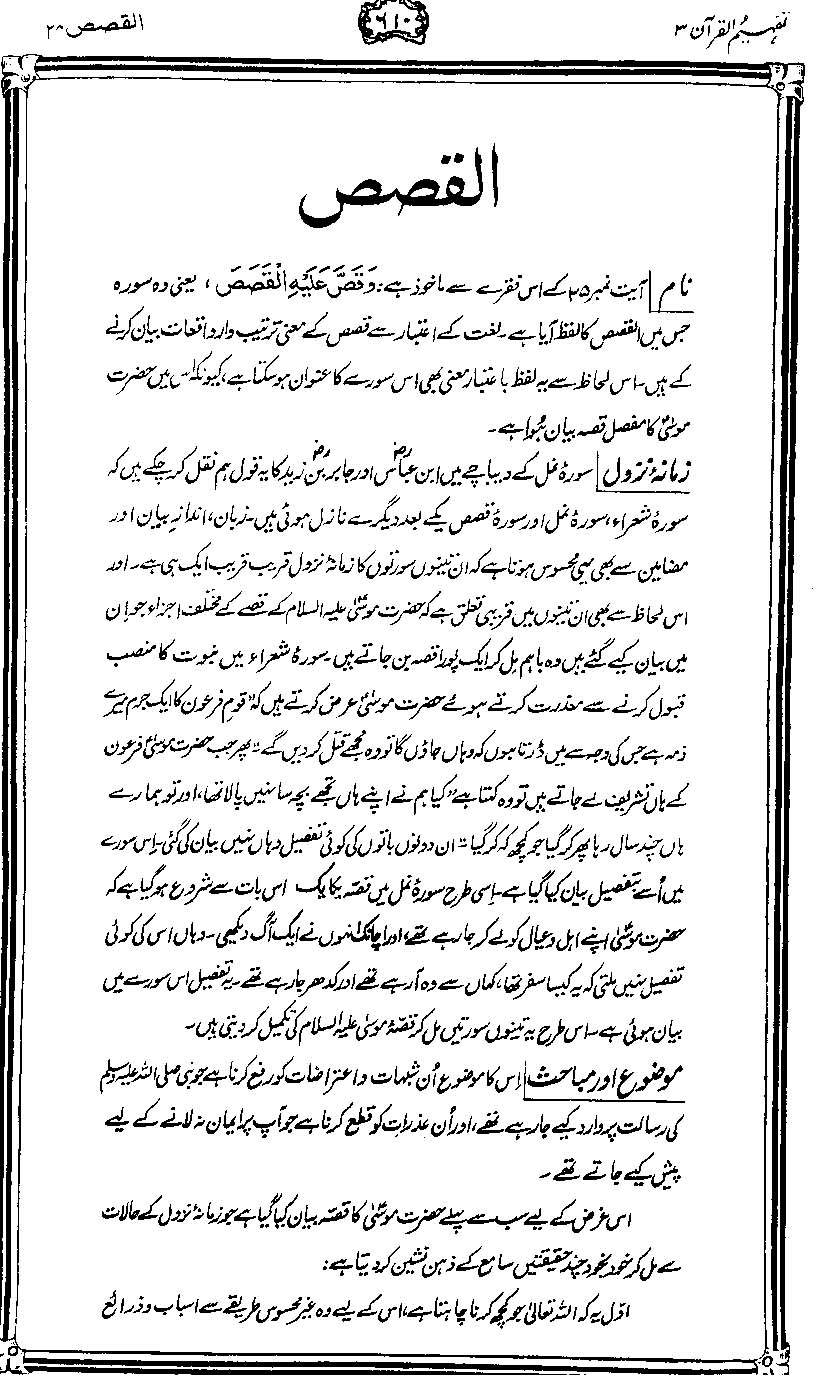 تفہیم القرآن ۳
۶۱۰
القصص ۲۸
القصص
نام آیت نمبر ۲۵ کے اس فقرے سے ماخوذ ہے: وَقَصَّ عَلَيْهِ الْقَصَصَ ، یعنی وہ سورہ
جس میں القصص کا لفظ آیا ہے۔ لغت کے اعتبار سے قصص کے معنی ترتیب وار واقعات بیان کرنے
کے ہیں۔ اس لحاظ سے یہ لفظ باعتبار معنی بھی اس سورے کا عنوان ہوسکتا ہے، کیونکہ اس میں حضرت
موسیٰؑ کا مفصل قصہ بیان ہُوا ہے۔
زمانۂ نزول سورۂ نمل کے دیباچے میں ابن عباسؓ اور جابر بن زیدؓ کا یہ قول ہم نقل کر چکے ہیں کہ
سورۂ شعراء، سورۂ نمل اور سورۂ قصص یکے بعد دیگرے نازل ہوئی ہیں۔ زبان، اندازِ بیان اور
مضامین سے بھی یہی محسوس ہوتا ہے کہ ان تینوں سورتوں کا زمانۂ نزول قریب قریب ایک ہی ہے۔ اور
اس لحاظ سے بھی ان تینوں میں قریبی تعلق ہے کہ حضرت موسیٰ علیہ السلام کے قصے کے مختلف اجزاء جو ان
میں بیان کیے گئے ہیں وہ باہم مل کر ایک پورا قصہ بن جاتے ہیں۔ سورۂ شعراء میں نبوت کا منصب
قبول کرنے سے معذرت کرتے ہوئے حضرت موسیٰؑ عرض کرتے ہیں کہ "قوم فرعون کا ایک جرم میرے
ذمہ ہے جس کی وجہ سے میں ڈرتا ہوں کہ وہاں جاؤں گا تو وہ مجھے قتل کر دیں گے"۔ پھر جب حضرت موسیٰؑ فرعون
کے ہاں تشریف لے جاتے ہیں تو وہ کہتا ہے "کیا ہم نے اپنے ہاں تجھے بچہ سا نہیں پالا تھا، اور تو ہمارے
ہاں چند سال رہا پھر کر گیا جو کچھ کہ کر گیا"۔ ان دونوں باتوں کی کوئی تفصیل وہاں نہیں بیان کی گئی۔ اس سورے
میں اُسے بتفصیل بیان کیا گیا ہے۔ اِسی طرح سورۂ نمل میں قصّہ یکایک اس بات سے شروع ہو گیا ہے کہ
حضرت موسیٰؑ اپنے اہل و عیال کو لے کر جا رہے تھے، اور اچانک انہوں نے ایک آگ دیکھی۔ وہاں اس کی کوئی
تفصیل نہیں ملتی کہ یہ کیسا سفر تھا، کہاں سے وہ آ رہے تھے اور کدھر جا رہے تھے۔ یہ تفصیل اس سورے میں
بیان ہوئی ہے۔ اس طرح یہ تینوں سورتیں مل کر قصّۂ موسیٰ علیہ السلام کی تکمیل کر دیتی ہیں۔
موضوع اور مباحث اِس کا موضوع اُن شبہات و اعتراضات کو رفع کرنا ہے جو نبی صلی اللہ علیہ وسلم
کی رسالت پر وارد کیے جا رہے تھے، اور اُن عذرات کو قطع کرنا ہے جو آپ پر ایمان نہ لانے کے لیے
پیش کیے جاتے تھے۔
اس غرض کے لیے سب سے پہلے حضرت موسیٰؑ کا قصّہ بیان کیا گیا ہے جو زمانۂ نزول کے حالات
سے مل کر خود بخود چند حقیقتیں سامع کے ذہن نشین کر دیتا ہے:
اوّل یہ کہ اللہ تعالیٰ جو کچھ کرنا چاہتا ہے، اس کے لیے وہ غیر محسوس طریقے سے اسباب و ذرائع